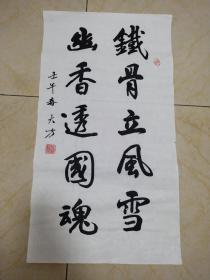 鐵骨立風雪
幽香透國魂
壬午春大方